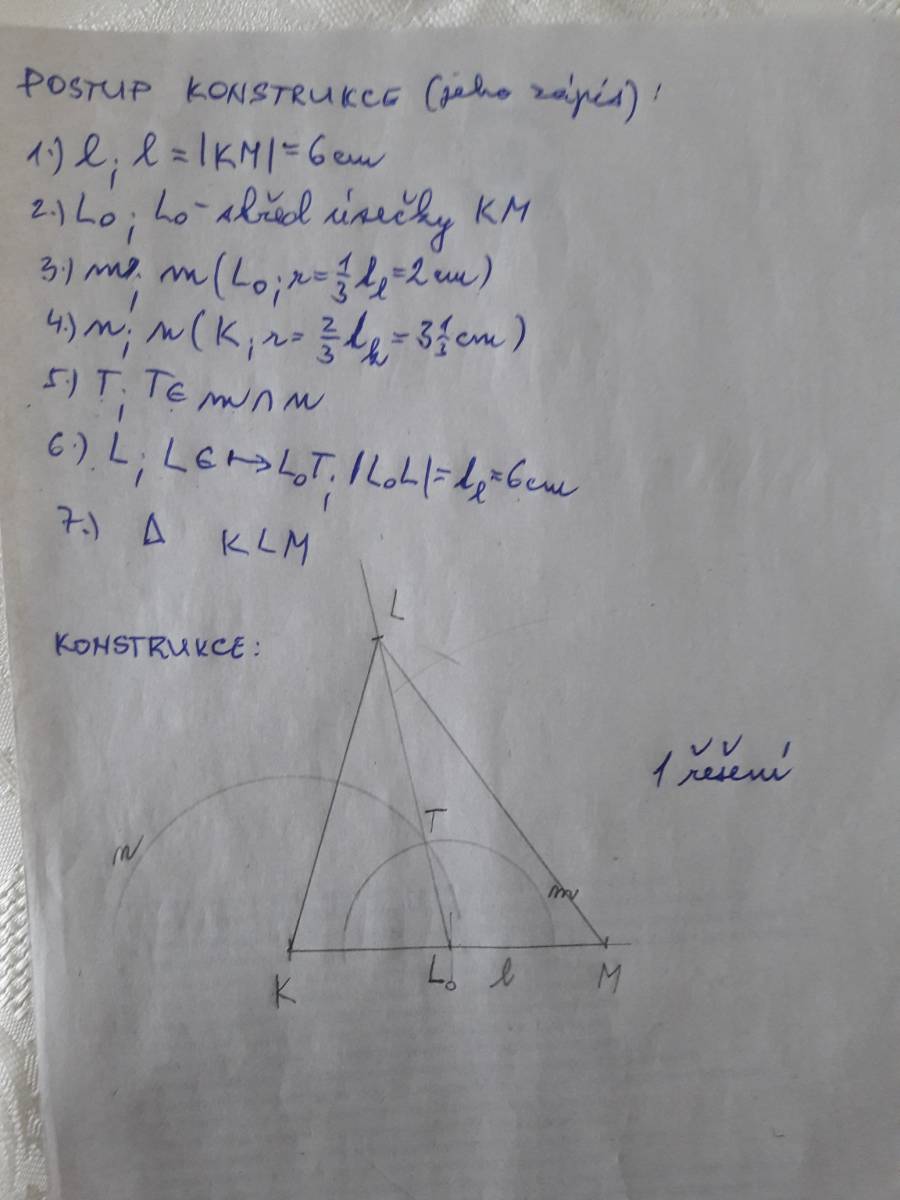 POSTUP KONSTRUKCE (jeho zápis):
1.) l; l = |KM| = 6cm
2.) L₀; L₀ - střed úsečky KM
3.) m; m(L₀; r = 1/3 tₗ = 2cm)
4.) n; n(K; r = 2/3 tₖ = 3 1/3 cm)
5.) T; T ∈ m ∩ n
6.) L; L ∈ ↦ L₀T; |L₀L| = tₗ = 6cm
7.) Δ KLM
KONSTRUKCE:
L
1 řešení
T
n
m
K
L₀
l
M